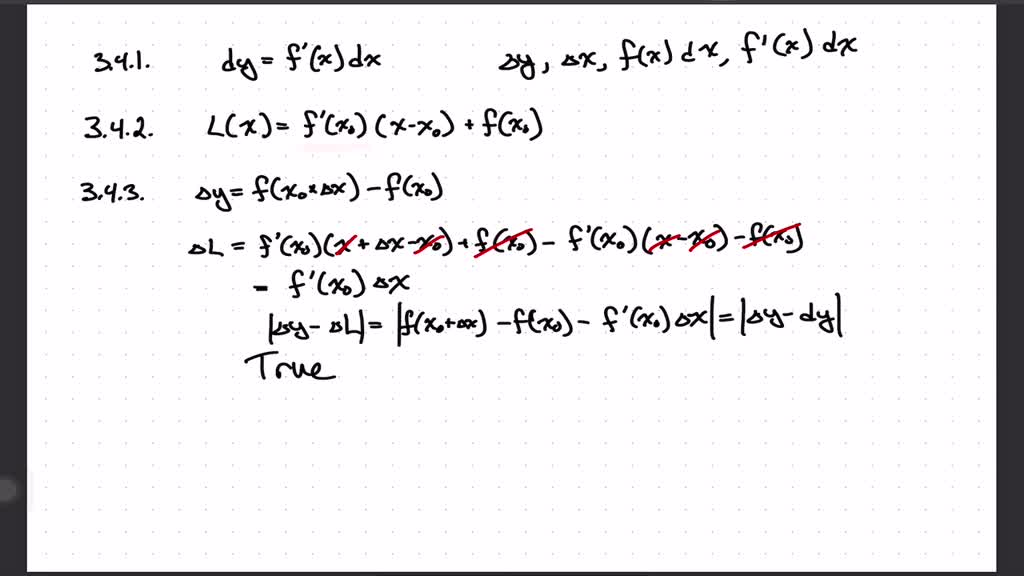 3.4.1. dy = f'(x) dx Δy, Δx, f(x) dx, f'(x) dx
3.4.2. L(x) = f'(x₀) (x-x₀) + f(x₀)
3.4.3. Δy = f(x₀+Δx) - f(x₀)
ΔL = f'(x₀)(x + Δx - x₀) + f(x₀) - f'(x₀)(x - x₀) - f(x₀)
= f'(x₀) Δx
|Δy - ΔL| = |f(x₀+Δx) - f(x₀) - f'(x₀) Δx| = |Δy - dy|
True